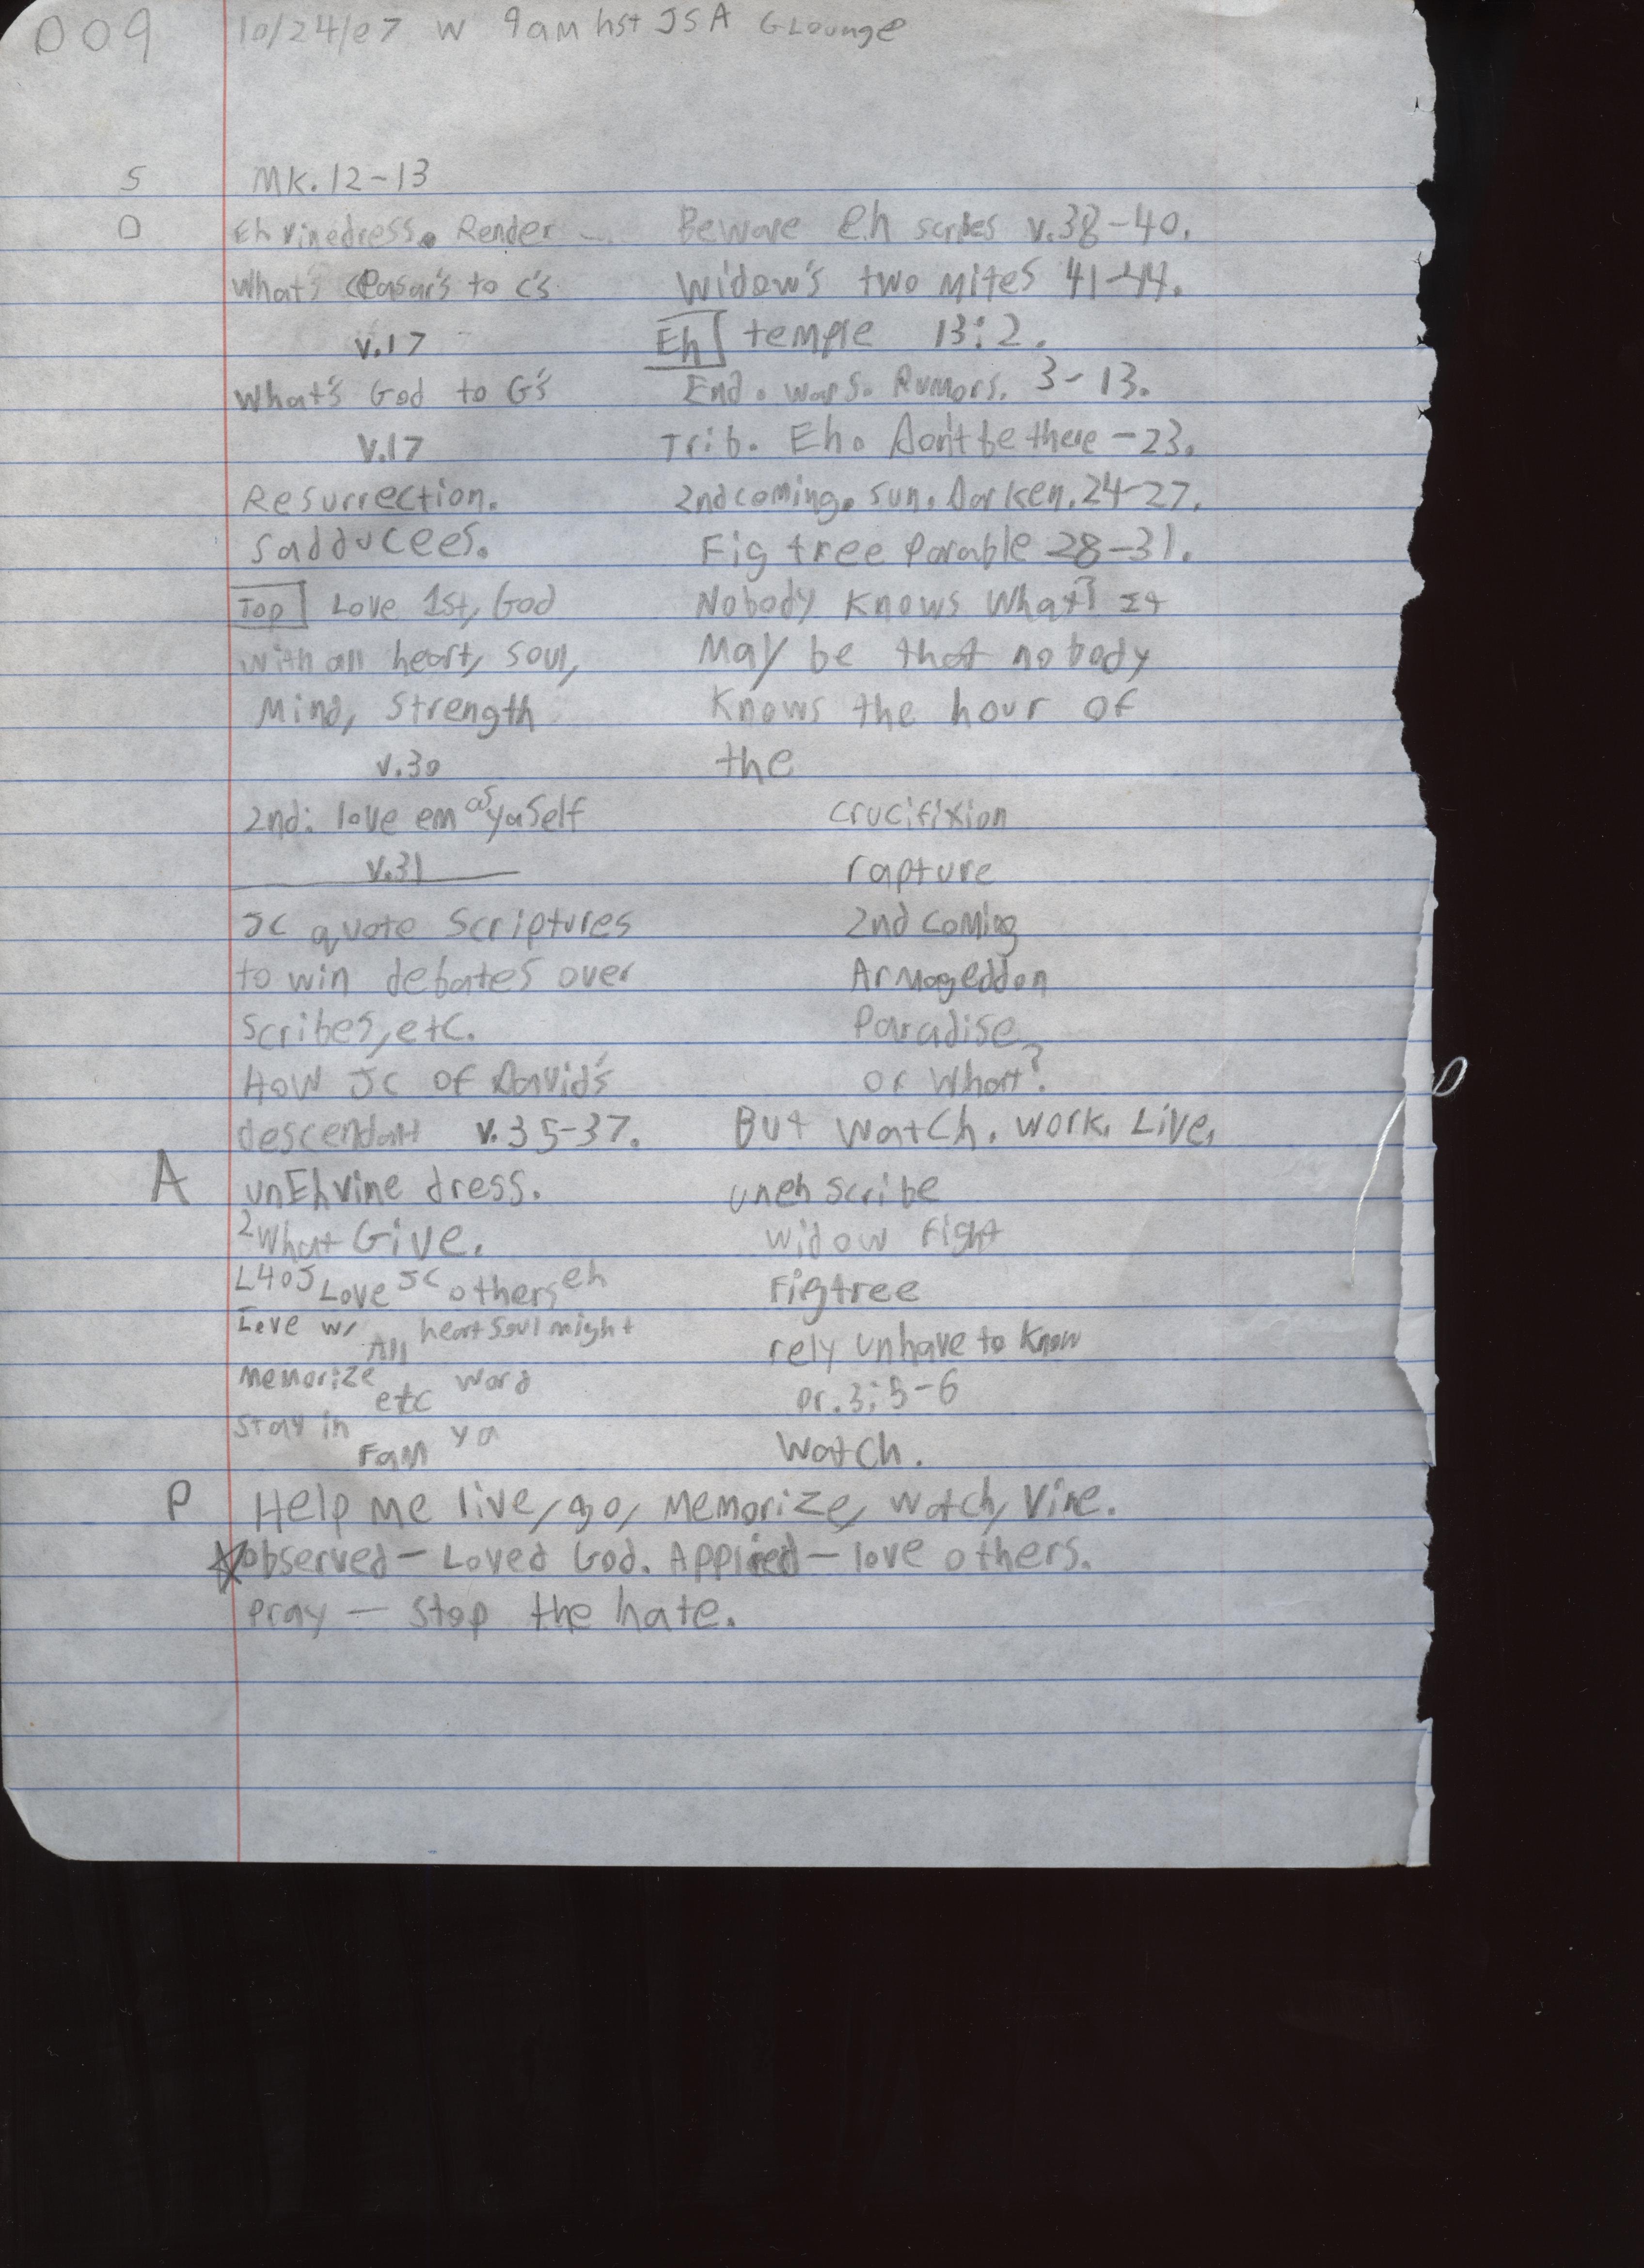 009 10/24/07 W 9am hst JSA GLounge
S Mk. 12-13
O Eh vinedress. Render
What's Ceasar's to C's
v.17
What's God to G's
v.17
Resurrection.
Sadducees.
Top Love 1st, God
with all heart, soul,
Mind, Strength
v.30
2nd: love em as yaself
v.31
JC quote Scriptures
to win debates over
Scribes, etc.
How JC of David's
descendant v.35-37.
Beware eh scribes v.38-40.
Widow's two mites 41-44.
Eh temple 13:2.
End. wars. Rumors. 3-13.
Trib. Eh. Don't be there -23.
2nd coming. Sun. Darken. 24-27.
Fig tree Parable 28-31.
Nobody Knows What? It
May be that nobody
Knows the hour of
the
crucifixion
rapture
2nd coming
Armageddon
Paradise
or What?
But Watch. Work. Live.
A unEhvine dress.
2 What Give.
L4OJ Love JC others eh
Love w/ All heart soul might
Memorize etc word
Stay in Fam ya
uneh scribe
widow fight
Figtree
rely unhave to know
pr. 3:5-6
Watch.
P Help me live, go, memorize, watch, vine.
observed - Loved God. Applied - love others.
pray - Stop the hate.